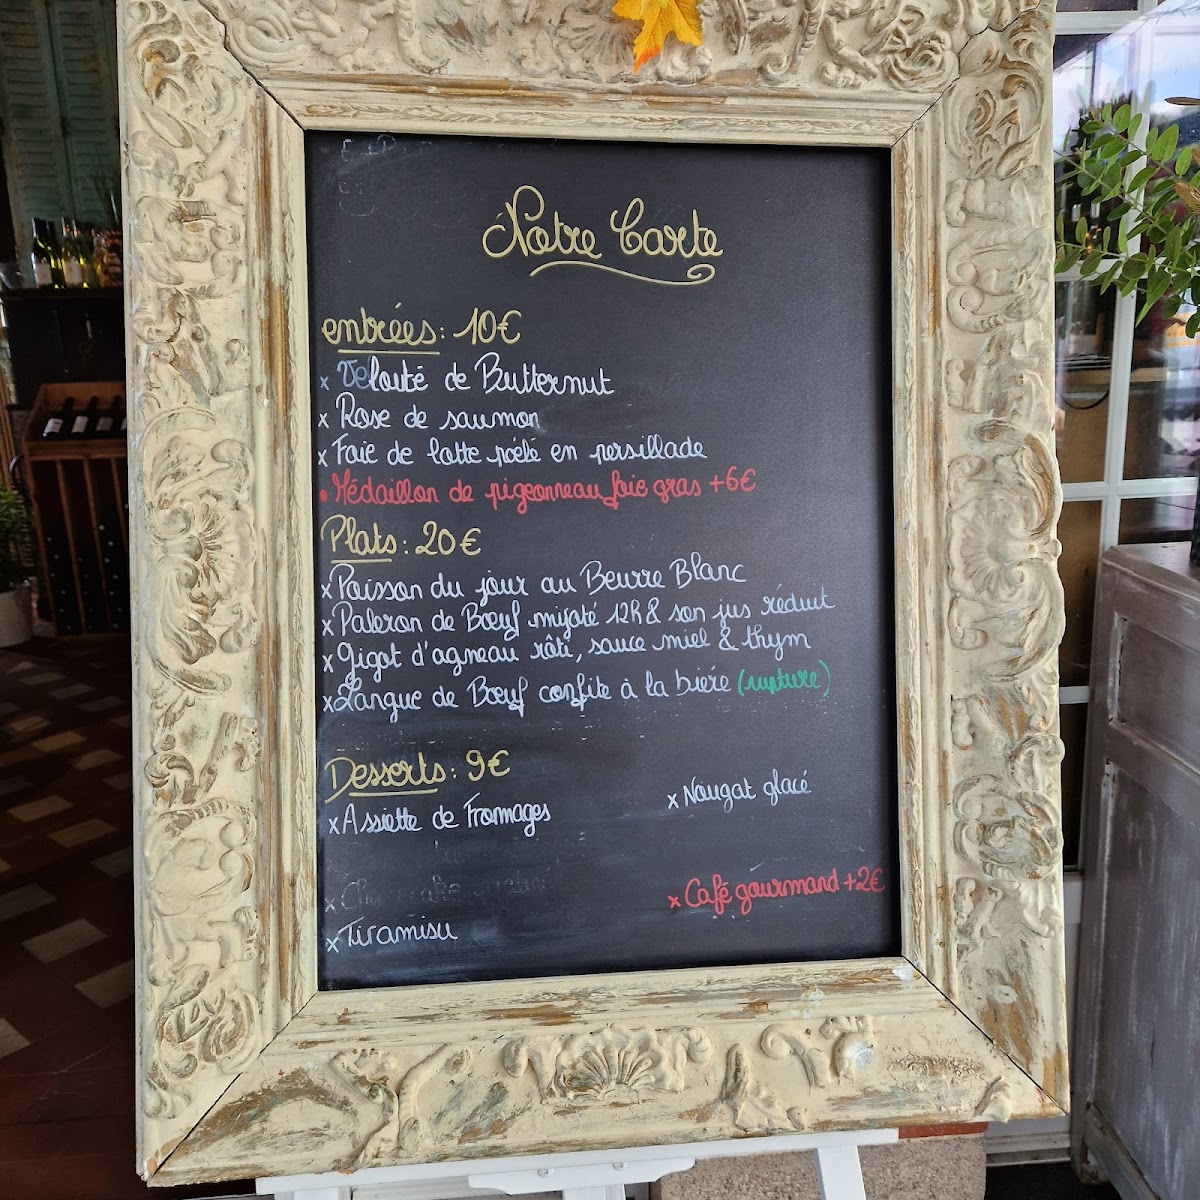 Notre Carte
entrées : 10€
x Velouté de Butternut
x Rose de saumon
x Foie de lotte poêlé en persillade
• Médaillon de pigeonneau foie gras +6€
Plats : 20€
x Poisson du jour au Beurre Blanc
x Paleron de Bœuf mijoté 12h & son jus réduit
x Gigot d'agneau rôti, sauce miel & thym
x Langue de Bœuf confite à la bière (rupture)
Desserts : 9€
x Assiette de Fromages
x Nougat glacé
x Café gourmand +2€
x Tiramisu